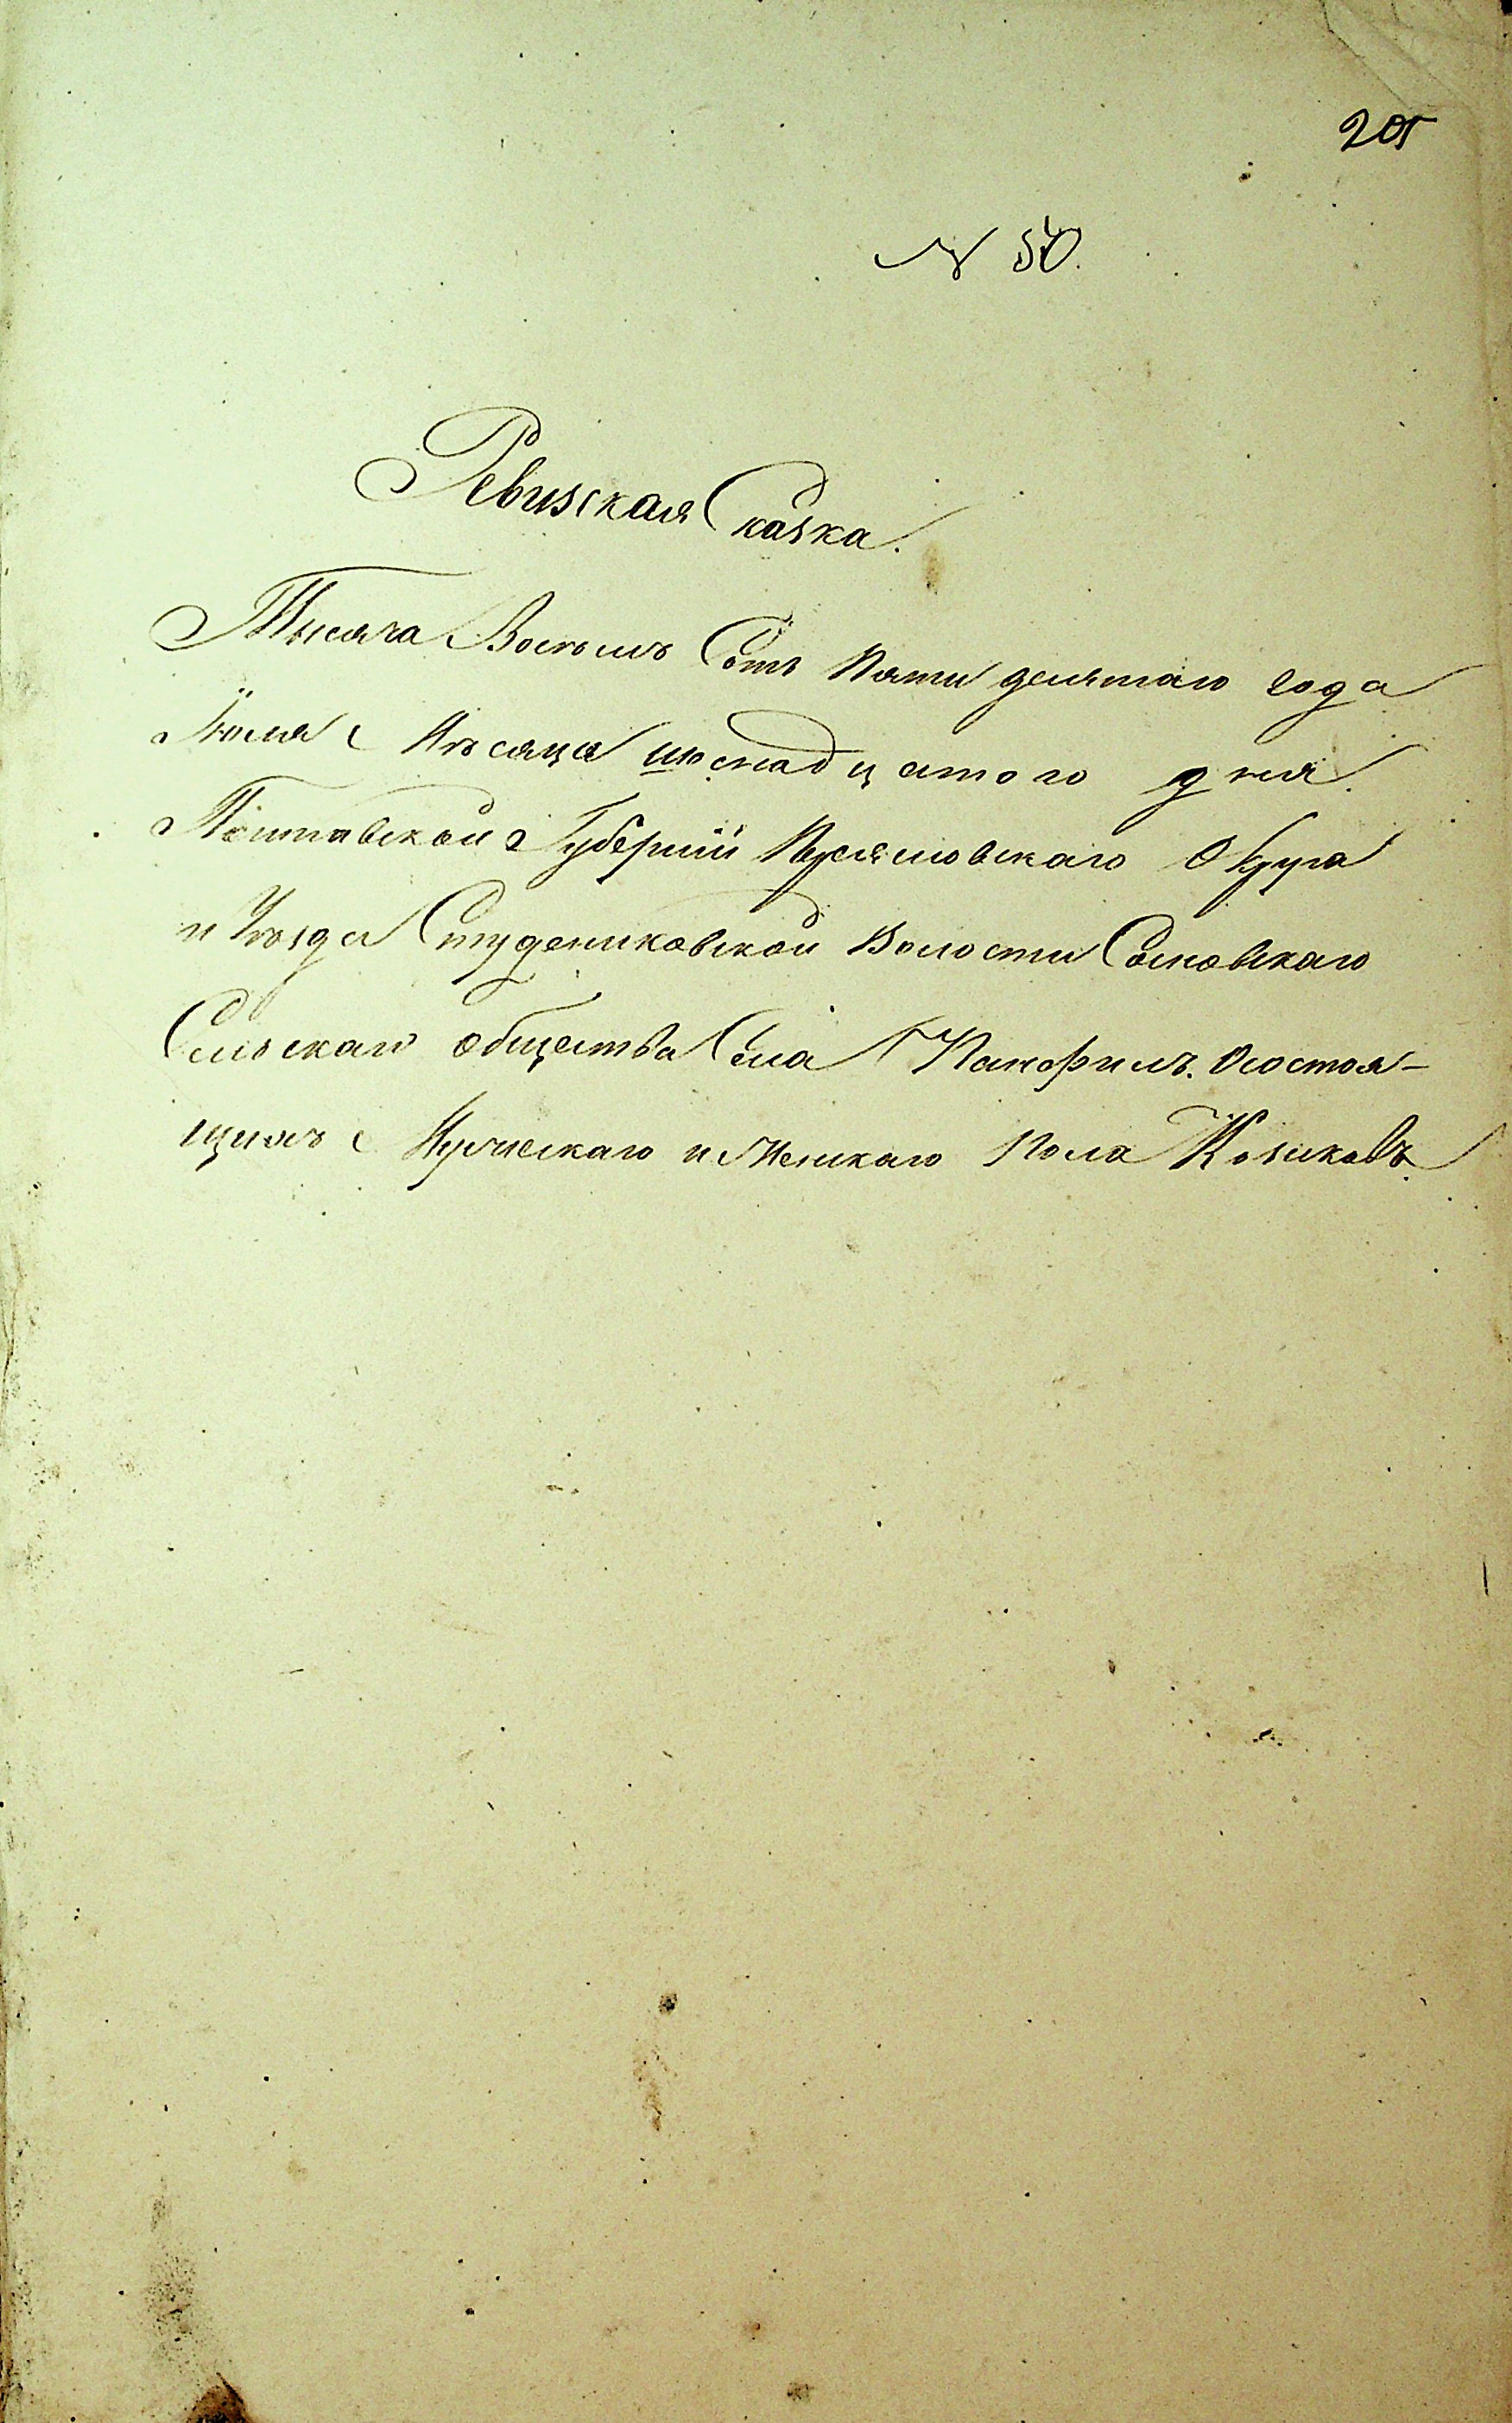 205
№ 50.
Ревизская Сказка.
Тысяча Восемь Сотъ Пятидесятаго года
Іюля Мѣсяца шеснадцатого дня.
Полтавской Губерніи Переяславского Округа
и Уѣзда Студениковской Волости Сосновскаго
Сельскаго общества Села Панфилъ. Осостоя-
щихъ Мужескаго и Женскаго пола Козаковъ.